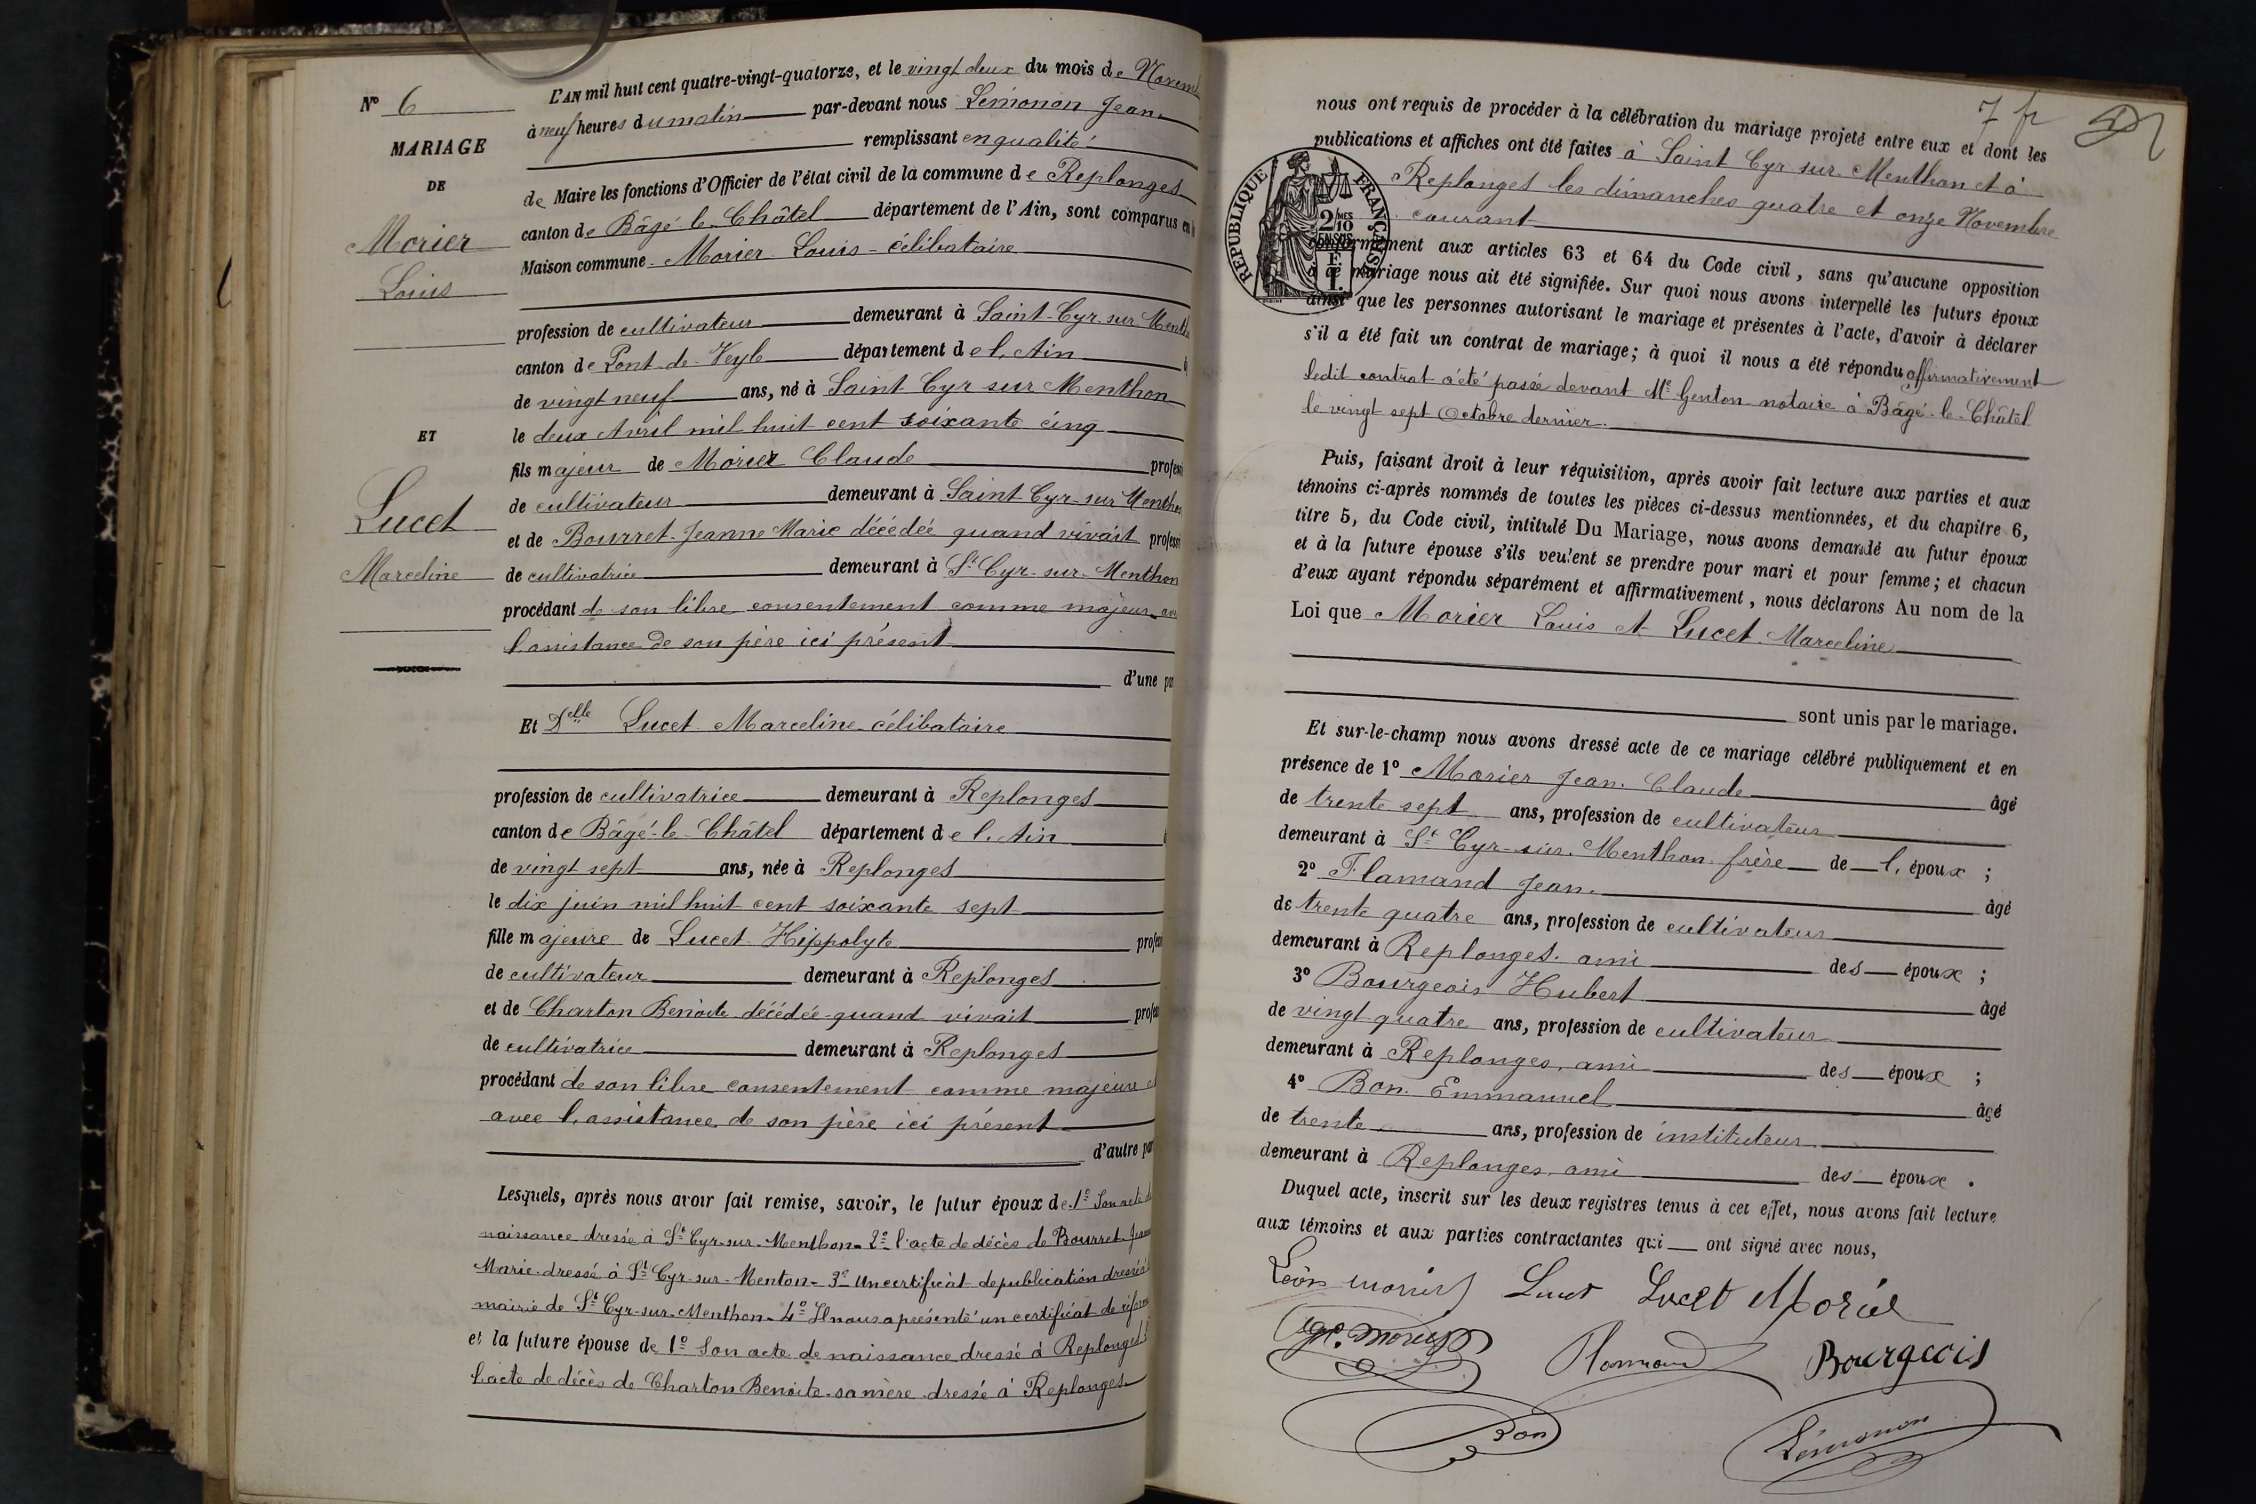 N° 6
MARIAGE
DE
Morier
Louis
ET
Lucet
Marceline
L'AN mil huit cent quatre-vingt-quatorze, et le vingt deux du mois de Novem
à neuf heures du matin par-devant nous Lémonon Jean
remplissant en qualité
de Maire les fonctions d'Officier de l'état civil de la commune de Replonges
canton de Bâgé-le-Châtel département de l'Ain, sont comparus en
Maison commune Morier Louis célibataire
profession de cultivateur demeurant à Saint-Cyr-sur-Menth
canton de Pont-de-Veyle département de l'Ain
de vingt neuf ans, né à Saint Cyr sur Menthon
le deux Avril mil huit cent soixante cinq
fils majeur de Morier Claude profess
de cultivateur demeurant à Saint Cyr-sur Menthon
et de Bourret Jeanne Marie décédée quand vivait profess
de cultivatrice demeurant à St Cyr-sur-Menthon
procédant de son libre consentement comme majeur
l'assistance de son père ici présent
d'une pa
Et Delle Lucet Marceline célibataire
profession de cultivatrice demeurant à Replonges
canton de Bâgé-le-Châtel département de l'Ain
de vingt sept ans, née à Replonges
le dix juin mil huit cent soixante sept
fille majeure de Lucet Hippolyte profess
de cultivateur demeurant à Replonges
et de Charton Benoite décédée quand vivait profess
de cultivatrice demeurant à Replonges
procédant de son libre consentement comme majeure et
avec l'assistance de son père ici présent
d'autre par
Lesquels, après nous avoir fait remise, savoir, le futur époux de 1° Son acte de
naissance dressé à St Cyr-sur-Menthon - 2° l'acte de décès de Bourret Jeanne
Marie dressé à St Cyr-sur-Menton - 3° Un certificat de publication dressé à
mairie de St Cyr-sur-Menthon - 4° Il nous a présenté un certificat de réforme
et la future épouse de 1° Son acte de naissance dressé à Replonges
L'acte de décès de Charton Benoite sa mère dressé à Replonges
7 fr
nous ont requis de procéder à la célébration du mariage projeté entre eux et dont les
publications et affiches ont été faites à Saint Cyr sur Menthon et à
Replonges les dimanches quatre et onze Novembre
courant
RÉPUBLIQUE FRANÇAISE
2/10
EN SUS
conformément aux articles 63 et 64 du Code civil, sans qu'aucune opposition
à ce mariage nous ait été signifiée. Sur quoi nous avons interpellé les futurs époux
ainsi que les personnes autorisant le mariage et présentes à l'acte, d'avoir à déclarer
s'il a été fait un contrat de mariage; à quoi il nous a été répondu affirmativement
ledit contrat a été passé devant Me Genton notaire à Bâgé-le-Châtel
le vingt sept Octobre dernier.
Puis, faisant droit à leur réquisition, après avoir fait lecture aux parties et aux
témoins ci-après nommés de toutes les pièces ci-dessus mentionnées, et du chapitre 6,
titre 5, du Code civil, intitulé Du Mariage, nous avons demandé au futur époux
et à la future épouse s'ils veulent se prendre pour mari et pour femme; et chacun
d'eux ayant répondu séparément et affirmativement, nous déclarons Au nom de la
Loi que Morier Louis et Lucet Marceline
sont unis par le mariage.
Et sur-le-champ nous avons dressé acte de ce mariage célébré publiquement et en
présence de 1° Morier Jean Claude âgé
de trente sept ans, profession de cultivateur
demeurant à St Cyr-sur-Menthon frère de l'époux ;
2° Flamand Jean âgé
de trente quatre ans, profession de cultivateur
demeurant à Replonges, ami des époux ;
3° Bourgeois Hubert âgé
de vingt quatre ans, profession de cultivateur
demeurant à Replonges, ami des époux ;
4° Bon Emmanuel âgé
de trente ans, profession de instituteur
demeurant à Replonges, ami des époux .
Duquel acte, inscrit sur les deux registres tenus à cet effet, nous avons fait lecture
aux témoins et aux parties contractantes qui ont signé avec nous,
Lucet Lucet Morier
Morier Flamand Bourgeois
Bon Lémonon